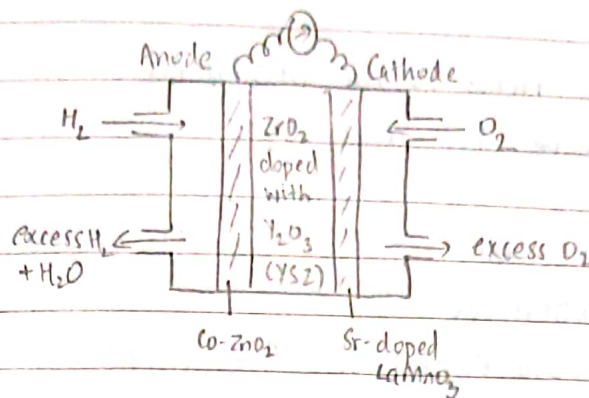 Anode
Cathode
H₂
ZrO₂
doped
with
Y₂O₃
(YSZ)
O₂
excess H₂
+ H₂O
excess O₂
Co-ZnO₂
Sr-doped
LaMnO₃